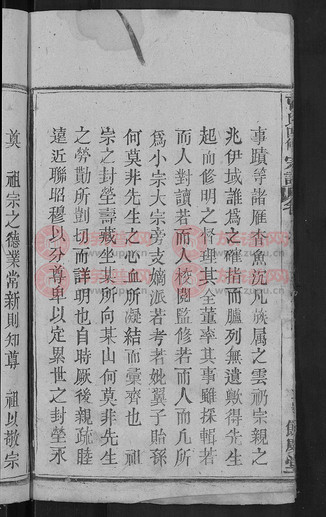 事蹟等諸雁杳魚沉凡族属之雲礽宗親之
兆伊域誰爲之確指而臚列無遺歟得先生
起而修明之督理其全董率其事雖採輯若
而人對讀若而人校閱監修若而人而凡所
爲小宗大宗旁支嫡派若考若妣翼子貽孫
何莫非先生之心血所凝結而彙齊也 祖
宗之封塋壽藏坐某所向某山何莫非先生
之勞勩所剴切而詳明也自時厥後親疏睦
遠近聯昭穆以分尊卑以定累世之封塋永
奠 祖宗之德業常新則知尊 祖以敬宗